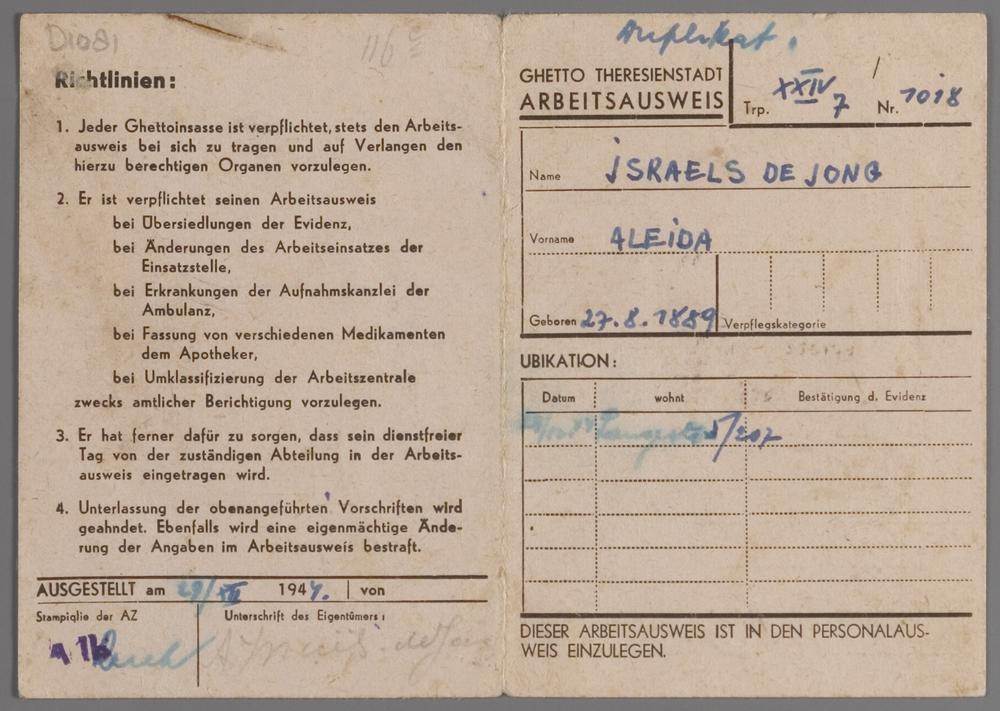 D1081
116
Richtlinien:
1. Jeder Ghettoinsasse ist verpflichtet, stets den Arbeits-
ausweis bei sich zu tragen und auf Verlangen den
hierzu berechtigen Organen vorzulegen.
2. Er ist verpflichtet seinen Arbeitsausweis
bei Übersiedlungen der Evidenz,
bei Änderungen des Arbeitseinsatzes der
Einsatzstelle,
bei Erkrankungen der Aufnahmskanzlei der
Ambulanz,
bei Fassung von verschiedenen Medikamenten
dem Apotheker,
bei Umklassifizierung der Arbeitszentrale
zwecks amtlicher Berichtigung vorzulegen.
3. Er hat ferner dafür zu sorgen, dass sein dienstfreier
Tag von der zuständigen Abteilung in der Arbeits-
ausweis eingetragen wird.
4. Unterlassung der obenangeführten Vorschriften wird
geahndet. Ebenfalls wird eine eigenmächtige Ände-
rung der Angaben im Arbeitsausweis bestraft.
AUSGESTELLT am 29/XII 1944. von
Stampiglie der AZ Unterschrift des Eigentümers:
Duplikat.
GHETTO THERESIENSTADT
ARBEITSAUSWEIS
Trp. XXIV/7 Nr. 1018
Name ISRAELS DE JONG
Vorname ALEIDA
Geboren 27.8.1889 Verpflegskategorie
UBIKATION:
Datum wohnt Bestätigung d. Evidenz
5/207
DIESER ARBEITSAUSWEIS IST IN DEN PERSONALAUS-
WEIS EINZULEGEN.